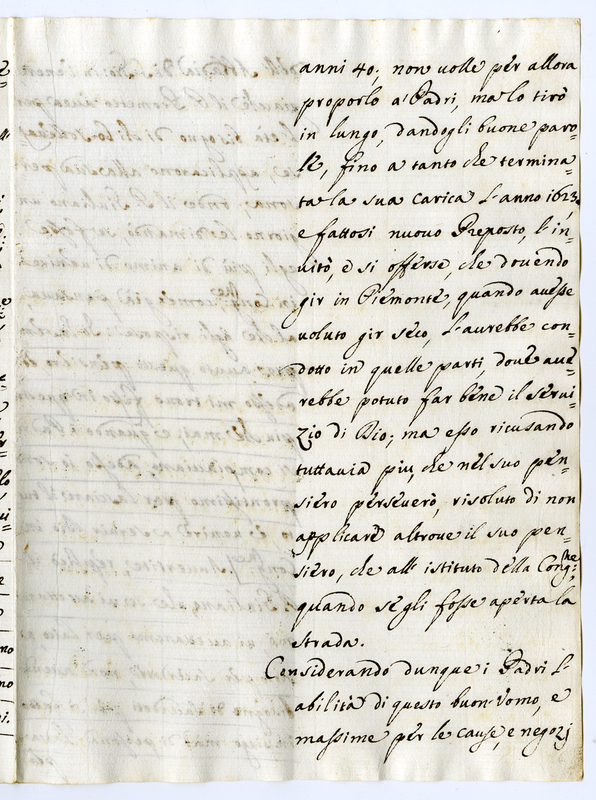 anni 40; non volle per allora
proporlo a' Padri, ma lo tirò
in lungo, dandogli buone paro=
le, fino a tanto che termina=
ta la sua carica l'anno 1623.
e fattosi nuovo Preposto, l'in=
uitò, e si offerse, che douendo
gir in Piemonte, quando auesse
uoluto gir seco, l'aurebbe con=
dotto in quelle parti, doue aue=
rebbe potuto far bene il serui=
zio di Dio; ma esso ricusando
tuttauia piu, che nel suo pen=
siero perseuerò, risoluto di non
applicare altroue il suo pen=
siero, che all' istituto della Cong.ne,
quando se gli fosse aperta la
strada.
Considerando dunque i Padri l'
abilità di questo buon Vomo, e
massime per le cause, e negozj